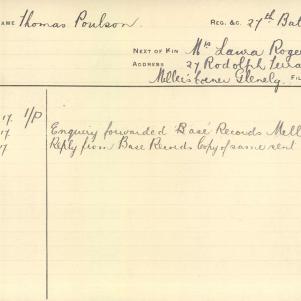 NAME Thomas Poulson. REG. &C. 27th Bat
NEXT OF KIN Mrs Laura Roger
ADDRESS 27 Rodolph Terra
Millers Corner Glenelg. FIL
17. 1/P
17. Enquiry forwarded Base Records Mell
17 Reply from Base Records Copy of same sent